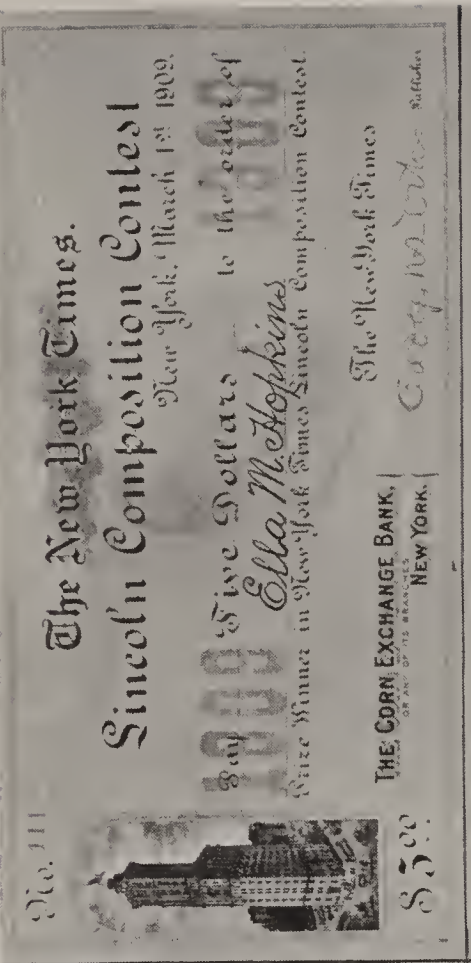 No. 111
The New York Times.
Lincoln Composition Contest
New York, March 1st 1909.
Pay Five Dollars to the order of
1000 1000
Ella M. Hopkins
Prize Winner in New York Times Lincoln Composition Contest.
The New York Times
THE CORN EXCHANGE BANK,
OR ANY OF ITS BRANCHES
NEW YORK.
Publisher
$5.00